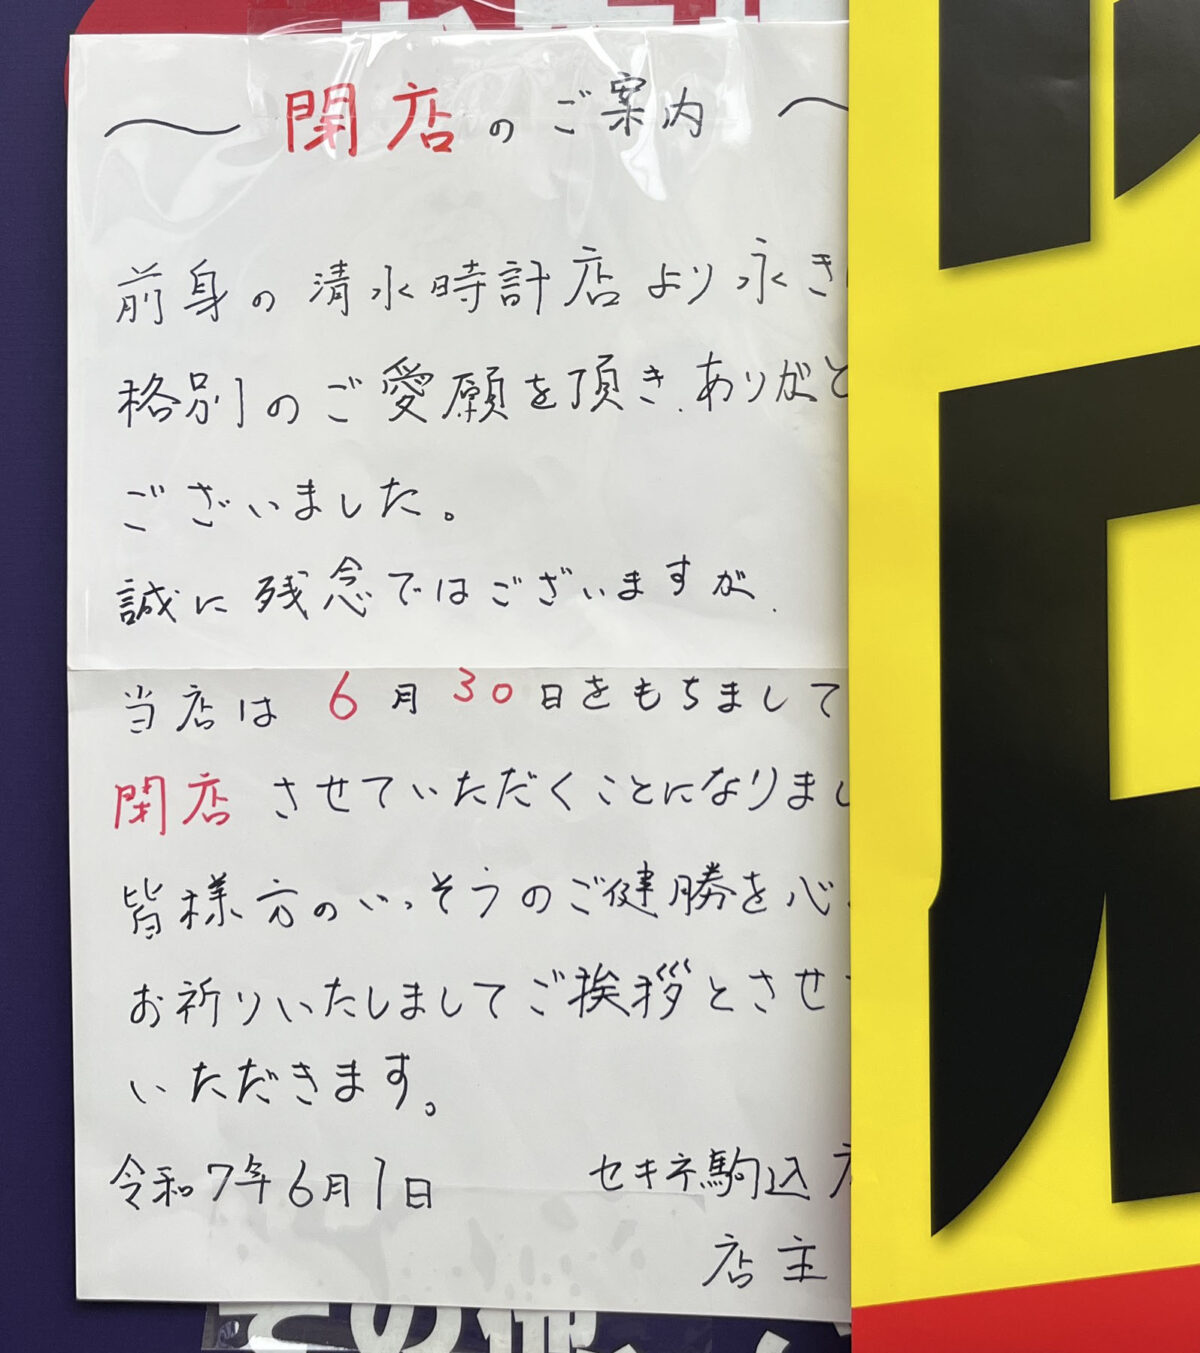 〜 閉店のご案内 〜
前身の清水時計店より永き
格別のご愛願を頂き、ありがと
ございました。
誠に残念ではございますが、
当店は6月30日をもちまして
閉店させていただくことになりまし
皆様方のいっそうのご健勝を心
お祈りいたしましてご挨拶とさせ
いただきます。
令和7年6月1日 セキネ駒込
店主
その他